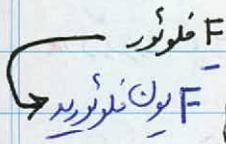 F فلوئور
F⁻ یون فلوئورید